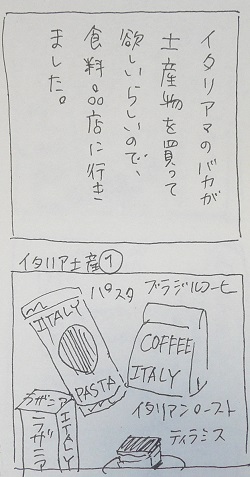 イタリアマのバカが
土産物を買って
欲しいらしいので、
食料品店に行き
ました。
イタリア土産①
パスタ
ブラジルコーヒ
ITALY
PASTA
COFFEE
ITALY
イタリアンロースト
ラザニア
ラザニア
ITALY
ティラミス